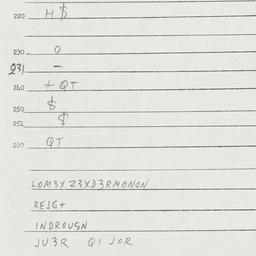 220 H $
230 O
231 –
240 + QT
250 $
251 $
260 QT
LOM3X Z3XD3RMONON
REJG+
INDROUSN
JU3R QI JOR